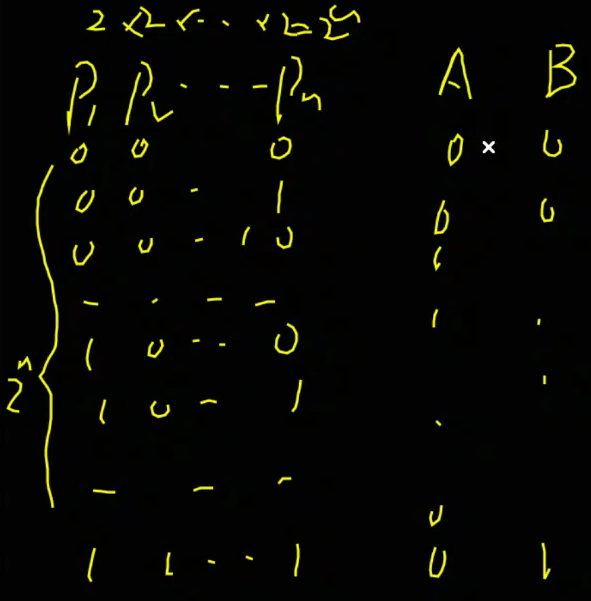 2 × 2 × - - × 2 = 2^n
P₁ P₂ - - - Pₙ A B
0 0 0 0 × 0
0 0 - 1 0 0
0 0 - 1 0
- - - -
1 0 - - 0
2^n
1 0 - 1
- - -
0
1 1 - - 1 0 1